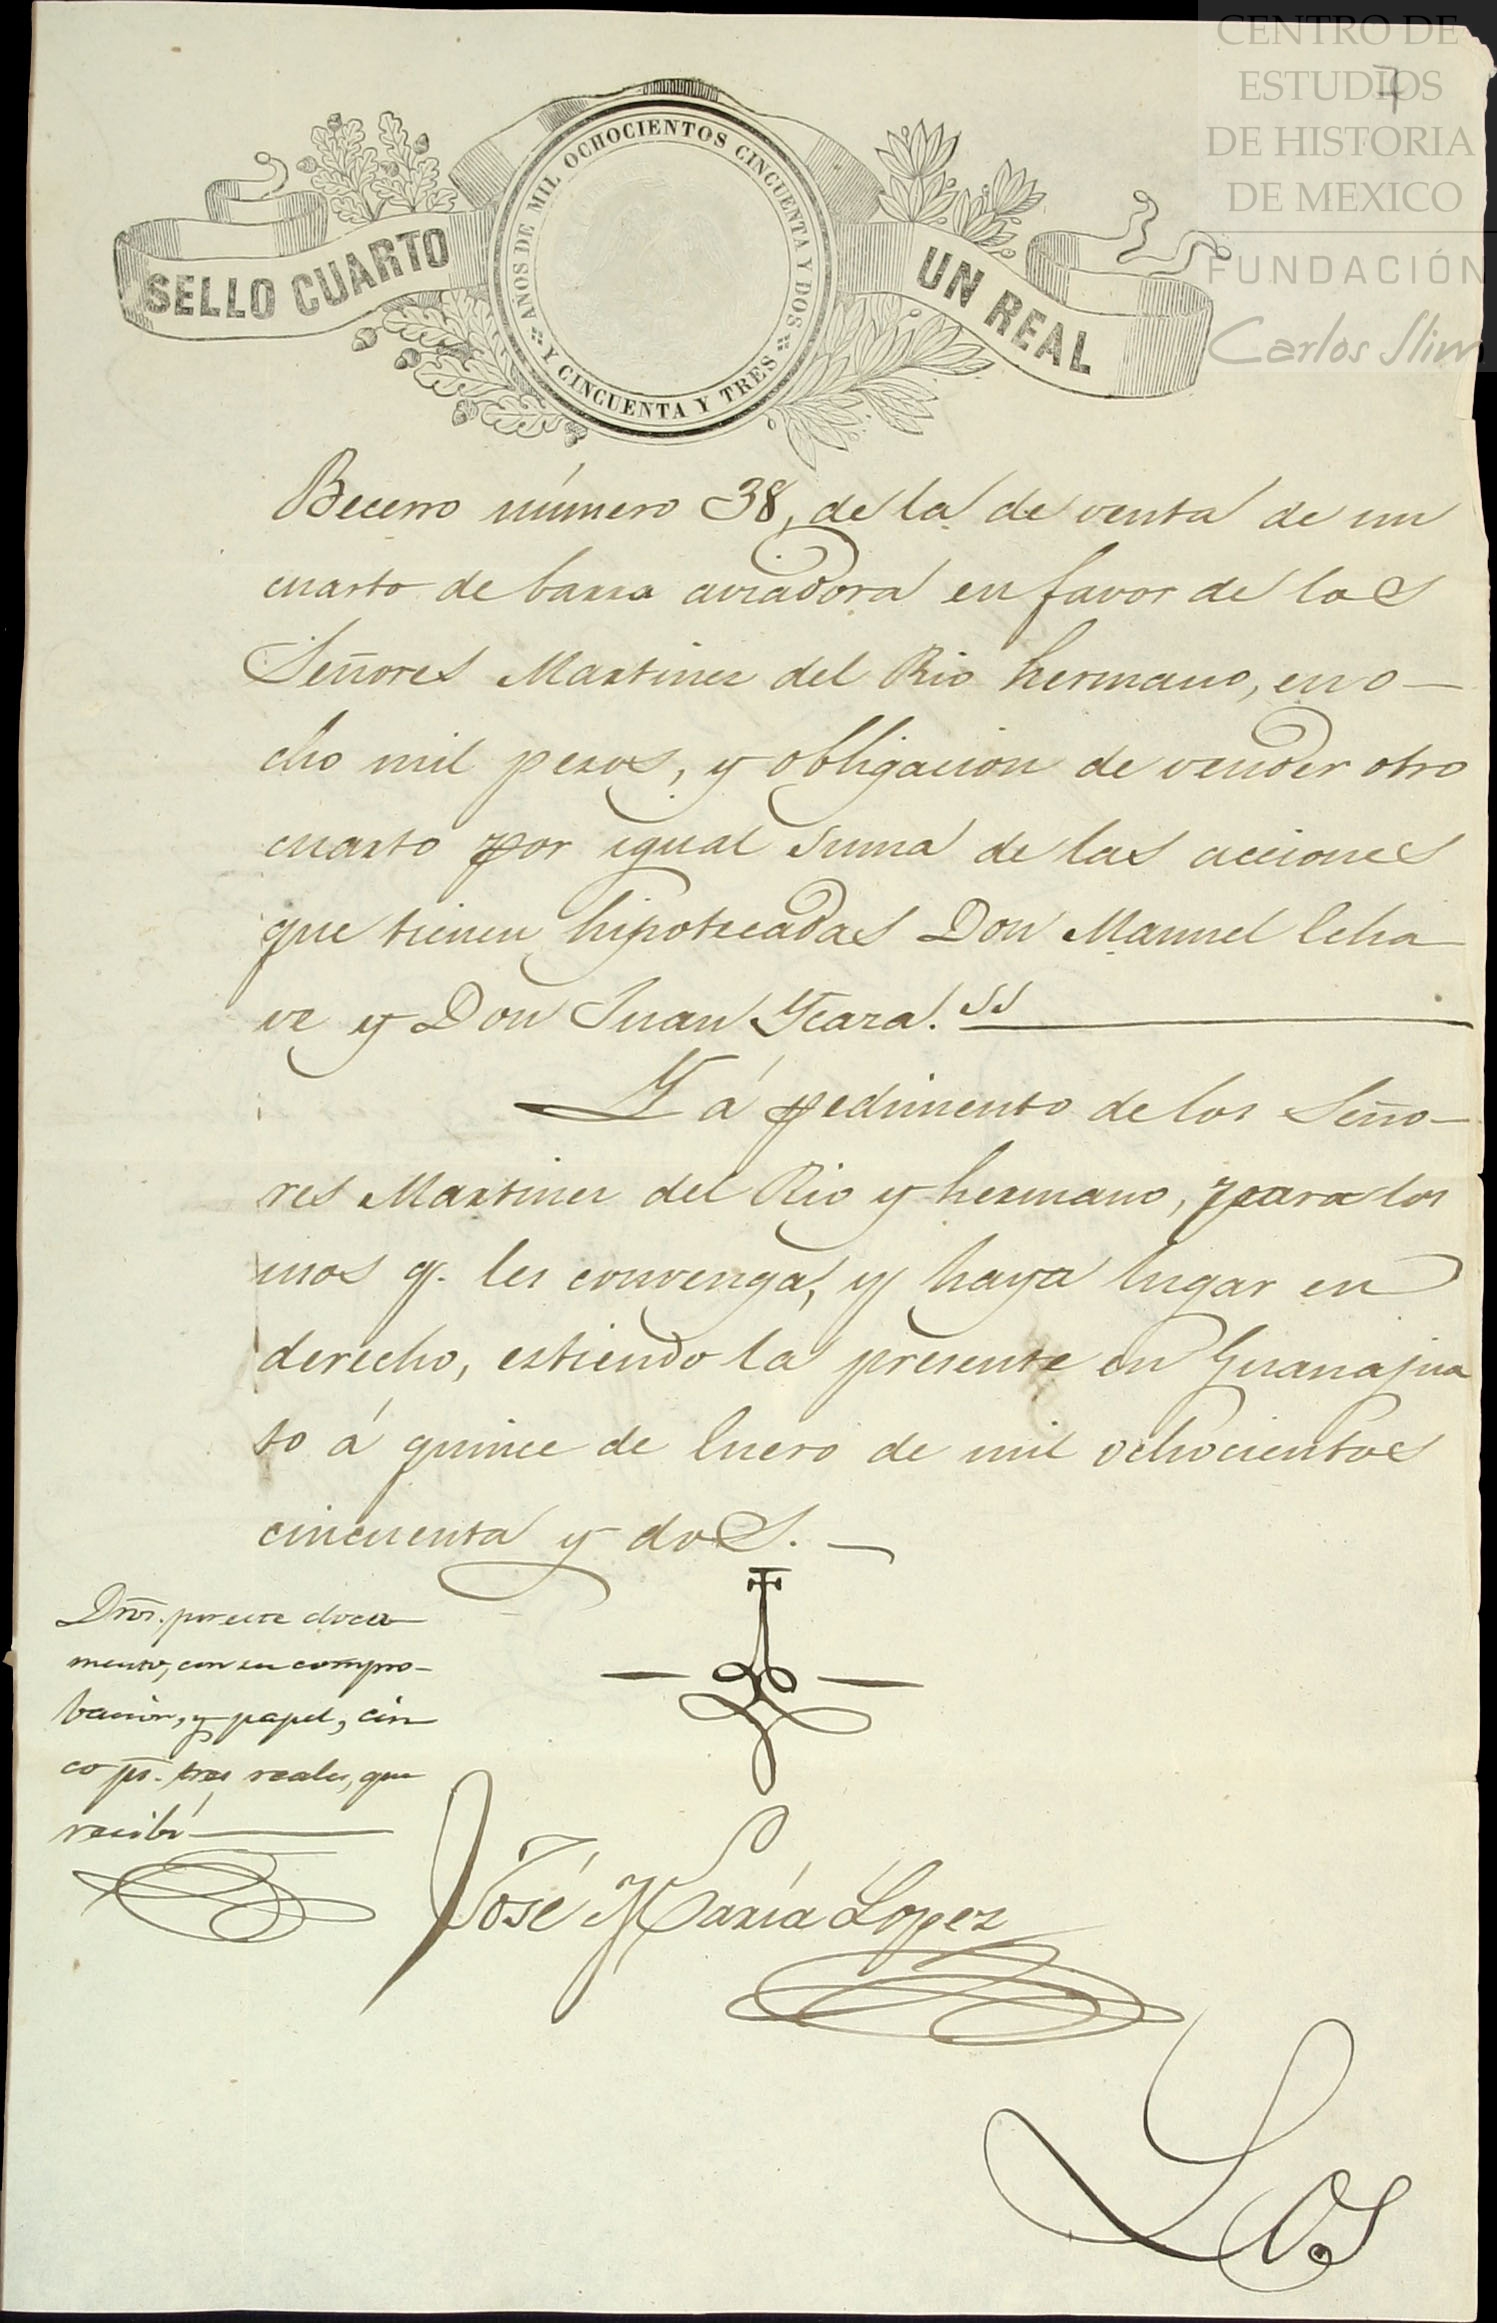 CENTRO DE
ESTUDIOS
DE HISTORIA
DE MEXICO
FUNDACIÓN
Carlos Slim
SELLO CUARTO
AÑOS DE MIL OCHOCIENTOS CINCUENTA Y DOS
Y CINCUENTA Y TRES
UN REAL
Becerro número 38, de la de venta de un
cuarto de barra aviadora en favor de los
Señores Martinez del Rio hermano, en o-
cho mil pesos, y obligacion de vender otro
cuarto por igual suma de las acciones
que tienen hipotecadas Don Manuel Echa
ve y Don Juan Ycaza. SS
Y á pedimento de los Seño-
res Martinez del Rio y hermano, para los
usos q. les convenga, y haya lugar en
derecho, estiendo la presente en Guanajua
to á quince de Enero de mil ochocientos
cincuenta y dos.
Dros. por este docu
mento, con su compro-
bacion, y papel, cin
co ps. tres reales, que
recibí
José María Lopez
Los